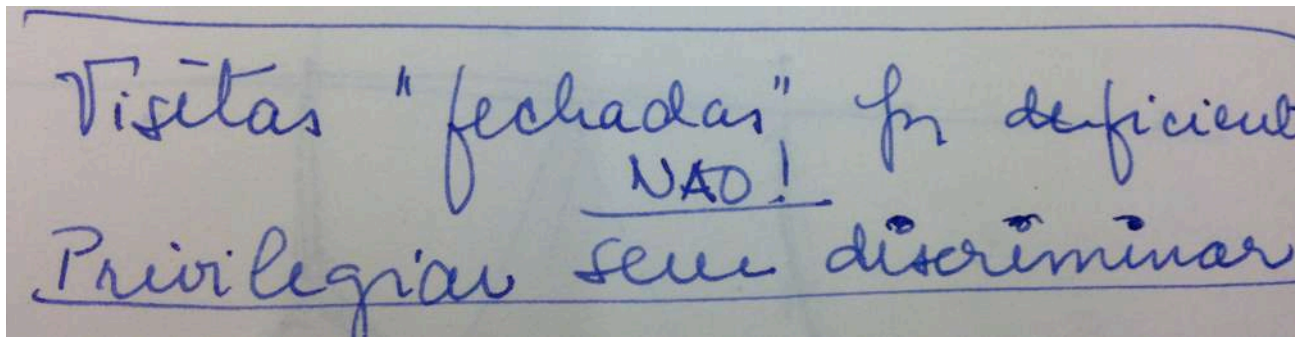 Visitas "fechadas" pr deficient
NAO!
Privilegiar sem discriminar